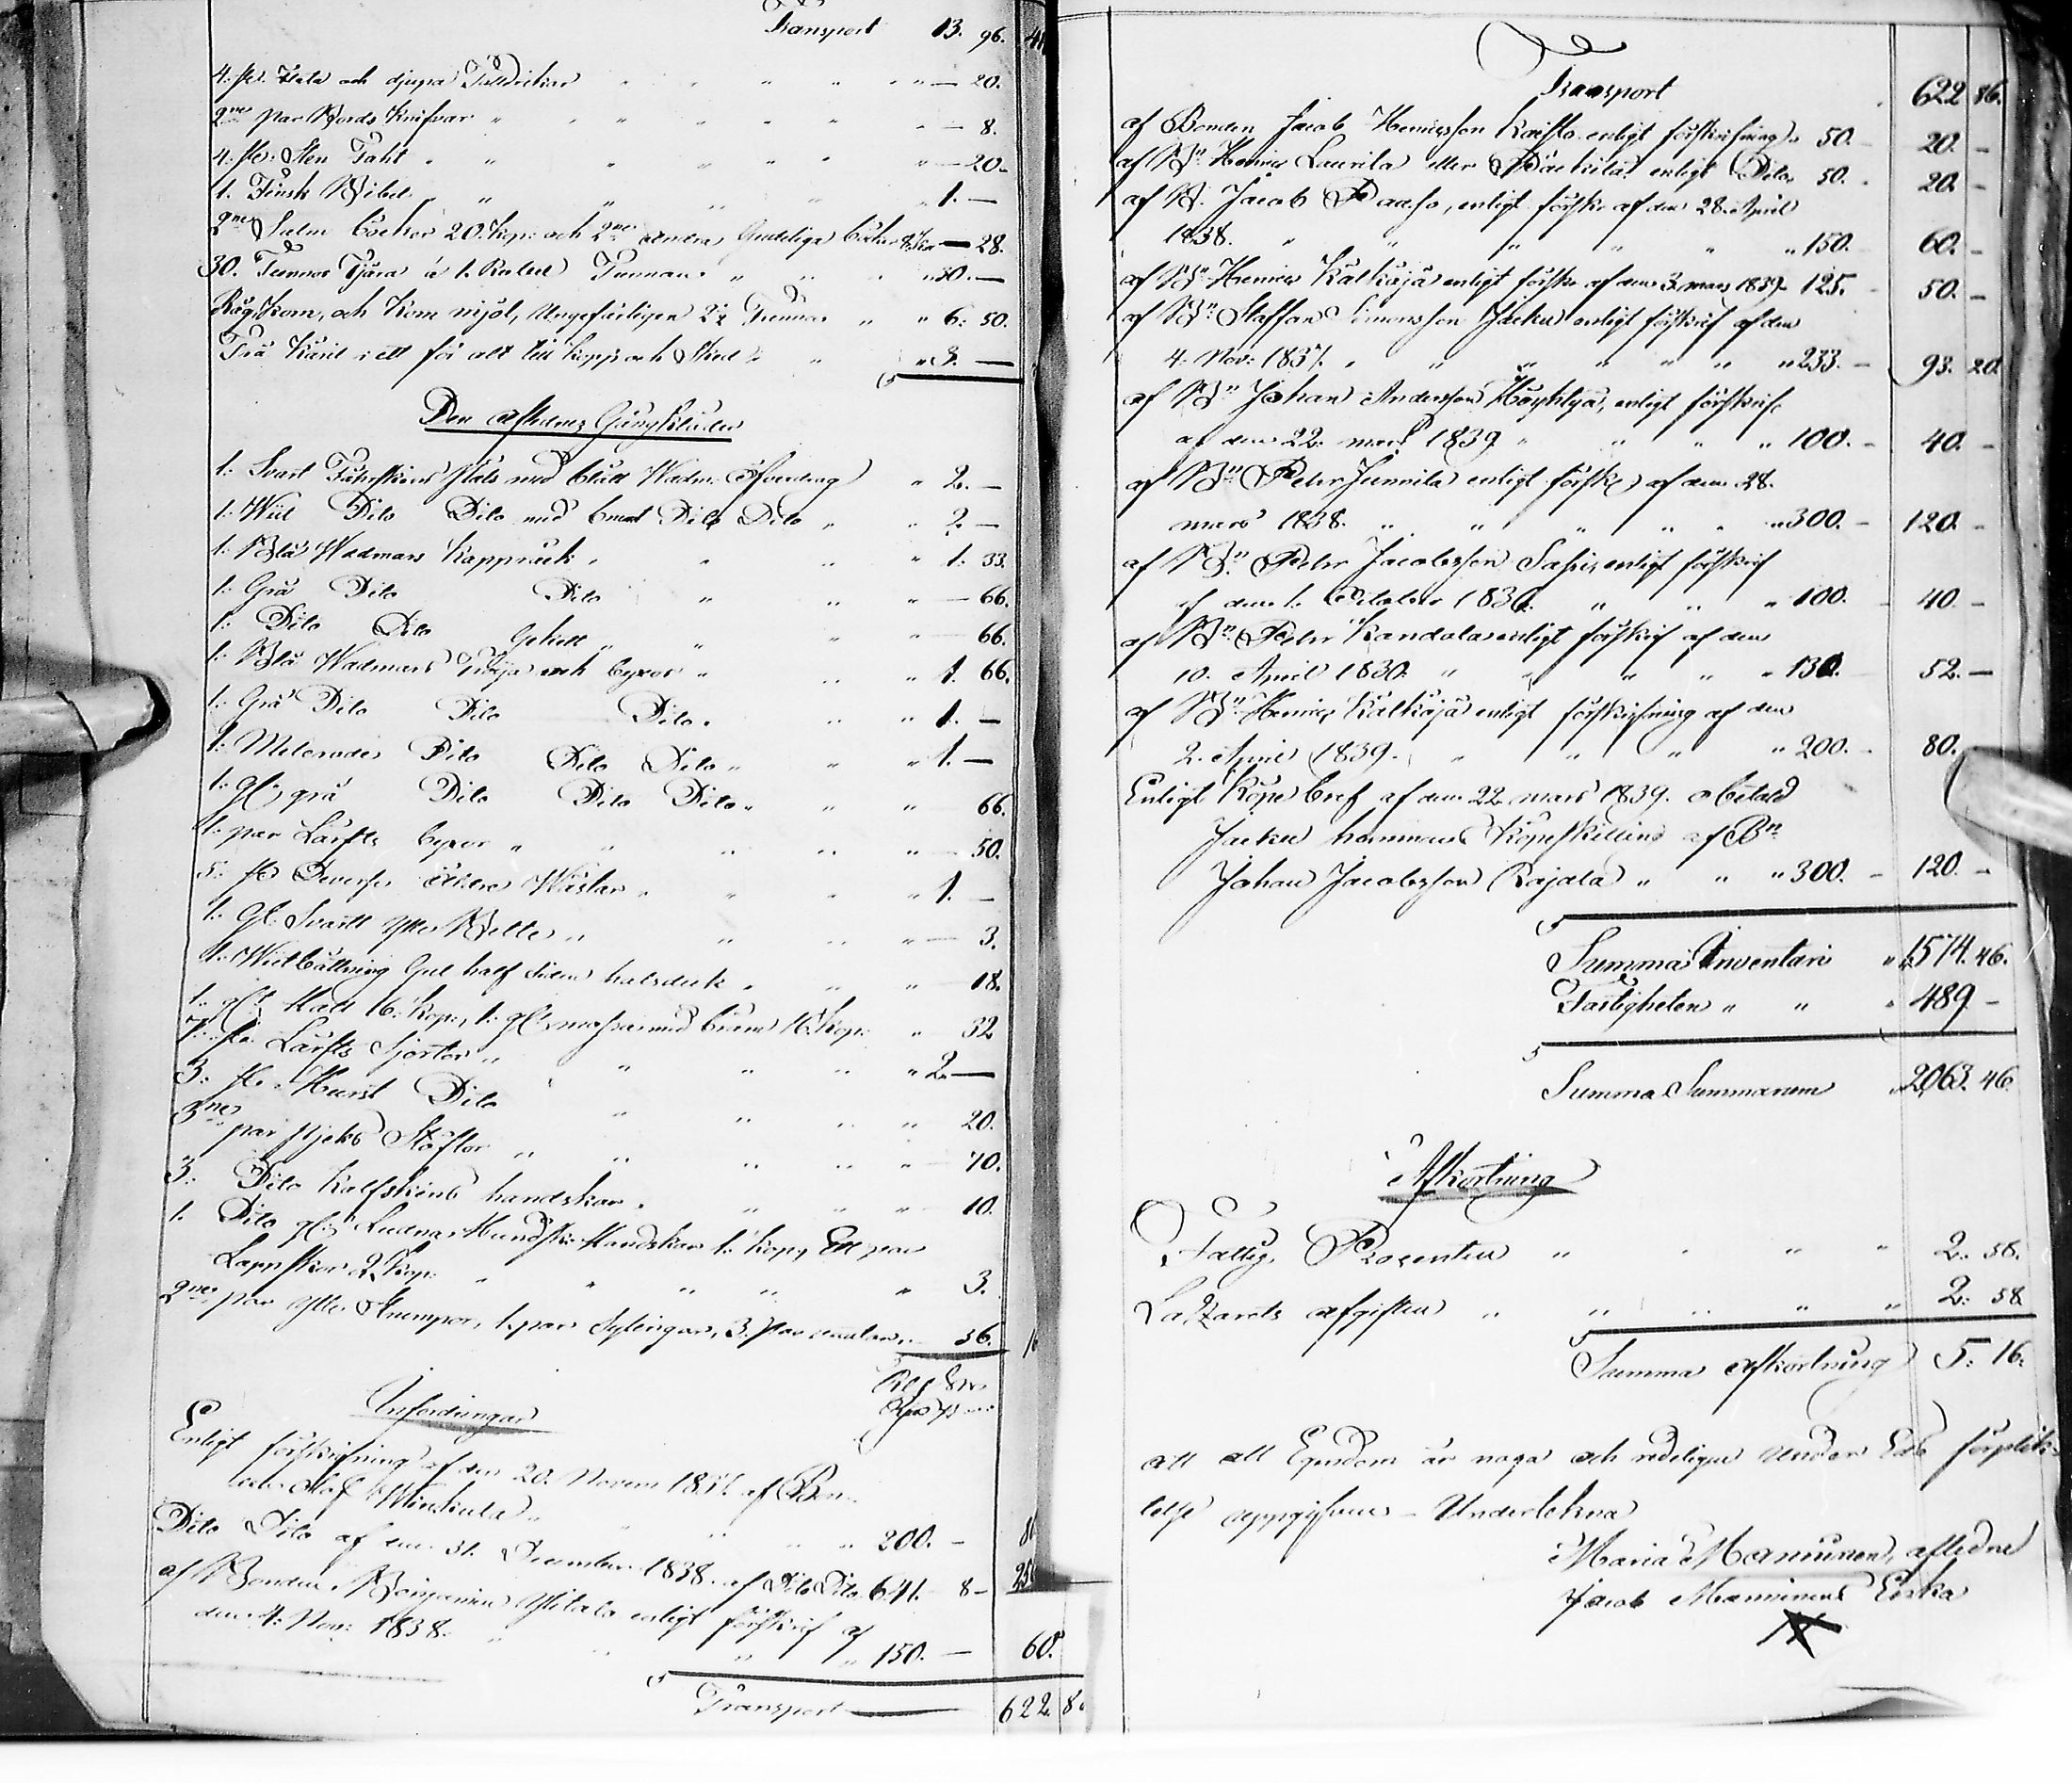 Transport 13. 96.
4. st. flata och djupa Talldrickar " " " " " — 20.
2ne par Bords Knifvar " " " " " — 8.
4. st. Sten Faht " " " " " — 20.
1. Finsk Bibel " " " " " 1. —
2ne Salm böcker 20. kop. och 2ne andra Gudeliga böcker 8 kop — 28.
30. Tunnor Tjära à 1. Rubel Tunnan " " " 30. —
Råg, Korn, och Korn mjöl, Ungefärligen 2½ Tunnor " " 6. 50.
Trä Käril i ett för alt till kopp och Sked " " " 3. —
Den aflednes Gångkläder
1. Svart Fårskins Päls med blått Wadm. Öfverdrag " 2. —
1. Wit Dito Dito med Dito Dito " " 2. —
1. Blå Wadmars Kappråck " " " " 1. 33.
1. Grå Dito Dito " " " — 66.
1. Dito Dito " " " — 66.
1. Blå Wadmars Tröja och byxor " " " 1. 66.
1. Grå Dito Dito Dito " " " 1. —
1. Melerade Dito Dito Dito " " " 1. —
1. gl. grå Dito Dito Dito " " " 66.
1. par Lärfts byxor " " " " " — 50.
5. st. Diverse äldre Wästar " " " " 1. —
1. Gl. Svartt ylle Bälte " " " " — 3.
1. Gul half Siden halsduk " " 18.
1. gl. Hatt 16. kop., 1. gl. mössa med bräm 16. kop. " 32
7. st. Lärfts Sjortor " " " " " 2. —
3. st. Hurst Dito " " " " 20.
3ne par Stöflor " " " " " 70.
3. Dito Kalfskins handskar " " " " 10.
1. Dito gl. Ludna Hundsk. Handskar 1. kop, Ett par
Lappskor 2. kop. " " " " " 3.
2ne par ylle Strumpor, 1. par Sylingar, 3. par " 36.
Infordringar
Enligt förskrifning af den 20. Novem 1837. af Bon-
den Olof " " " " 200. —
Dito Dito af den 31. December 1838. af Dito Dito 641. 8 —
af Bonden Benjamin Ylitalo enligt förskrif af
den 4. Nov. 1838. " " " " 150. — 60.
Transport — 622. 8
Transport 622 86.
af Bonden Jacob Henricsson enligt förskrifning 50. — 20. —
af Bn Henric Laurila eller enligt Dito 50. — 20. —
af B. Jacob Paaso, enligt förskr. af den 28. April
1838. " " " " " " 150. 60. —
af Bn Henric Kälkäjä enligt förskr. af den 3. mars 1839. 125. — 50. —
af Bn Staffan Simonsson Jacku enligt förskrif. af den
4. Nov. 1837. " " " " " " 233. — 93. 20.
af Bn Johan Andersson Höykkyä, enligt förskrif.
af den 22. mars 1839 " " " " 100. — 40. —
af Bn Peter Junnila enligt förskr. af den 28.
mars 1838. " " " " " " 300. — 120. —
af Bn Peter Jacobsson enligt förskrif
af den 1. October 1836. " " " 100. — 40. —
af Bn Peter Kandala enligt förskrif af den
10. April 1830. " " " " " 130. 52. —
af Bn Henric Kälkäjä enligt förskrifning af den
2. April 1839. " " " " 200. — 80.
Enligt Köpe bref af den 22. mars 1839. obetald
Jacku hemmans Köpeskilling af Bn
Johan Jacobsson Rajala " " " 300. — 120. —
Summa Inventari " 1574. 46.
Fastigheten " " " 489. —
Summa Summarum 2063. 46.
Afkortning
Fattig Procenten " " " " 2. 58.
Lazarets afgiften " " " " " 2. 58
Summa afkortning 5. 16.
att all Egendom är noga och redeligen under Eds förplik-
telse uppgifven — Undertekna
Maria Manninen, aflidne
Jacob Manninens Enka